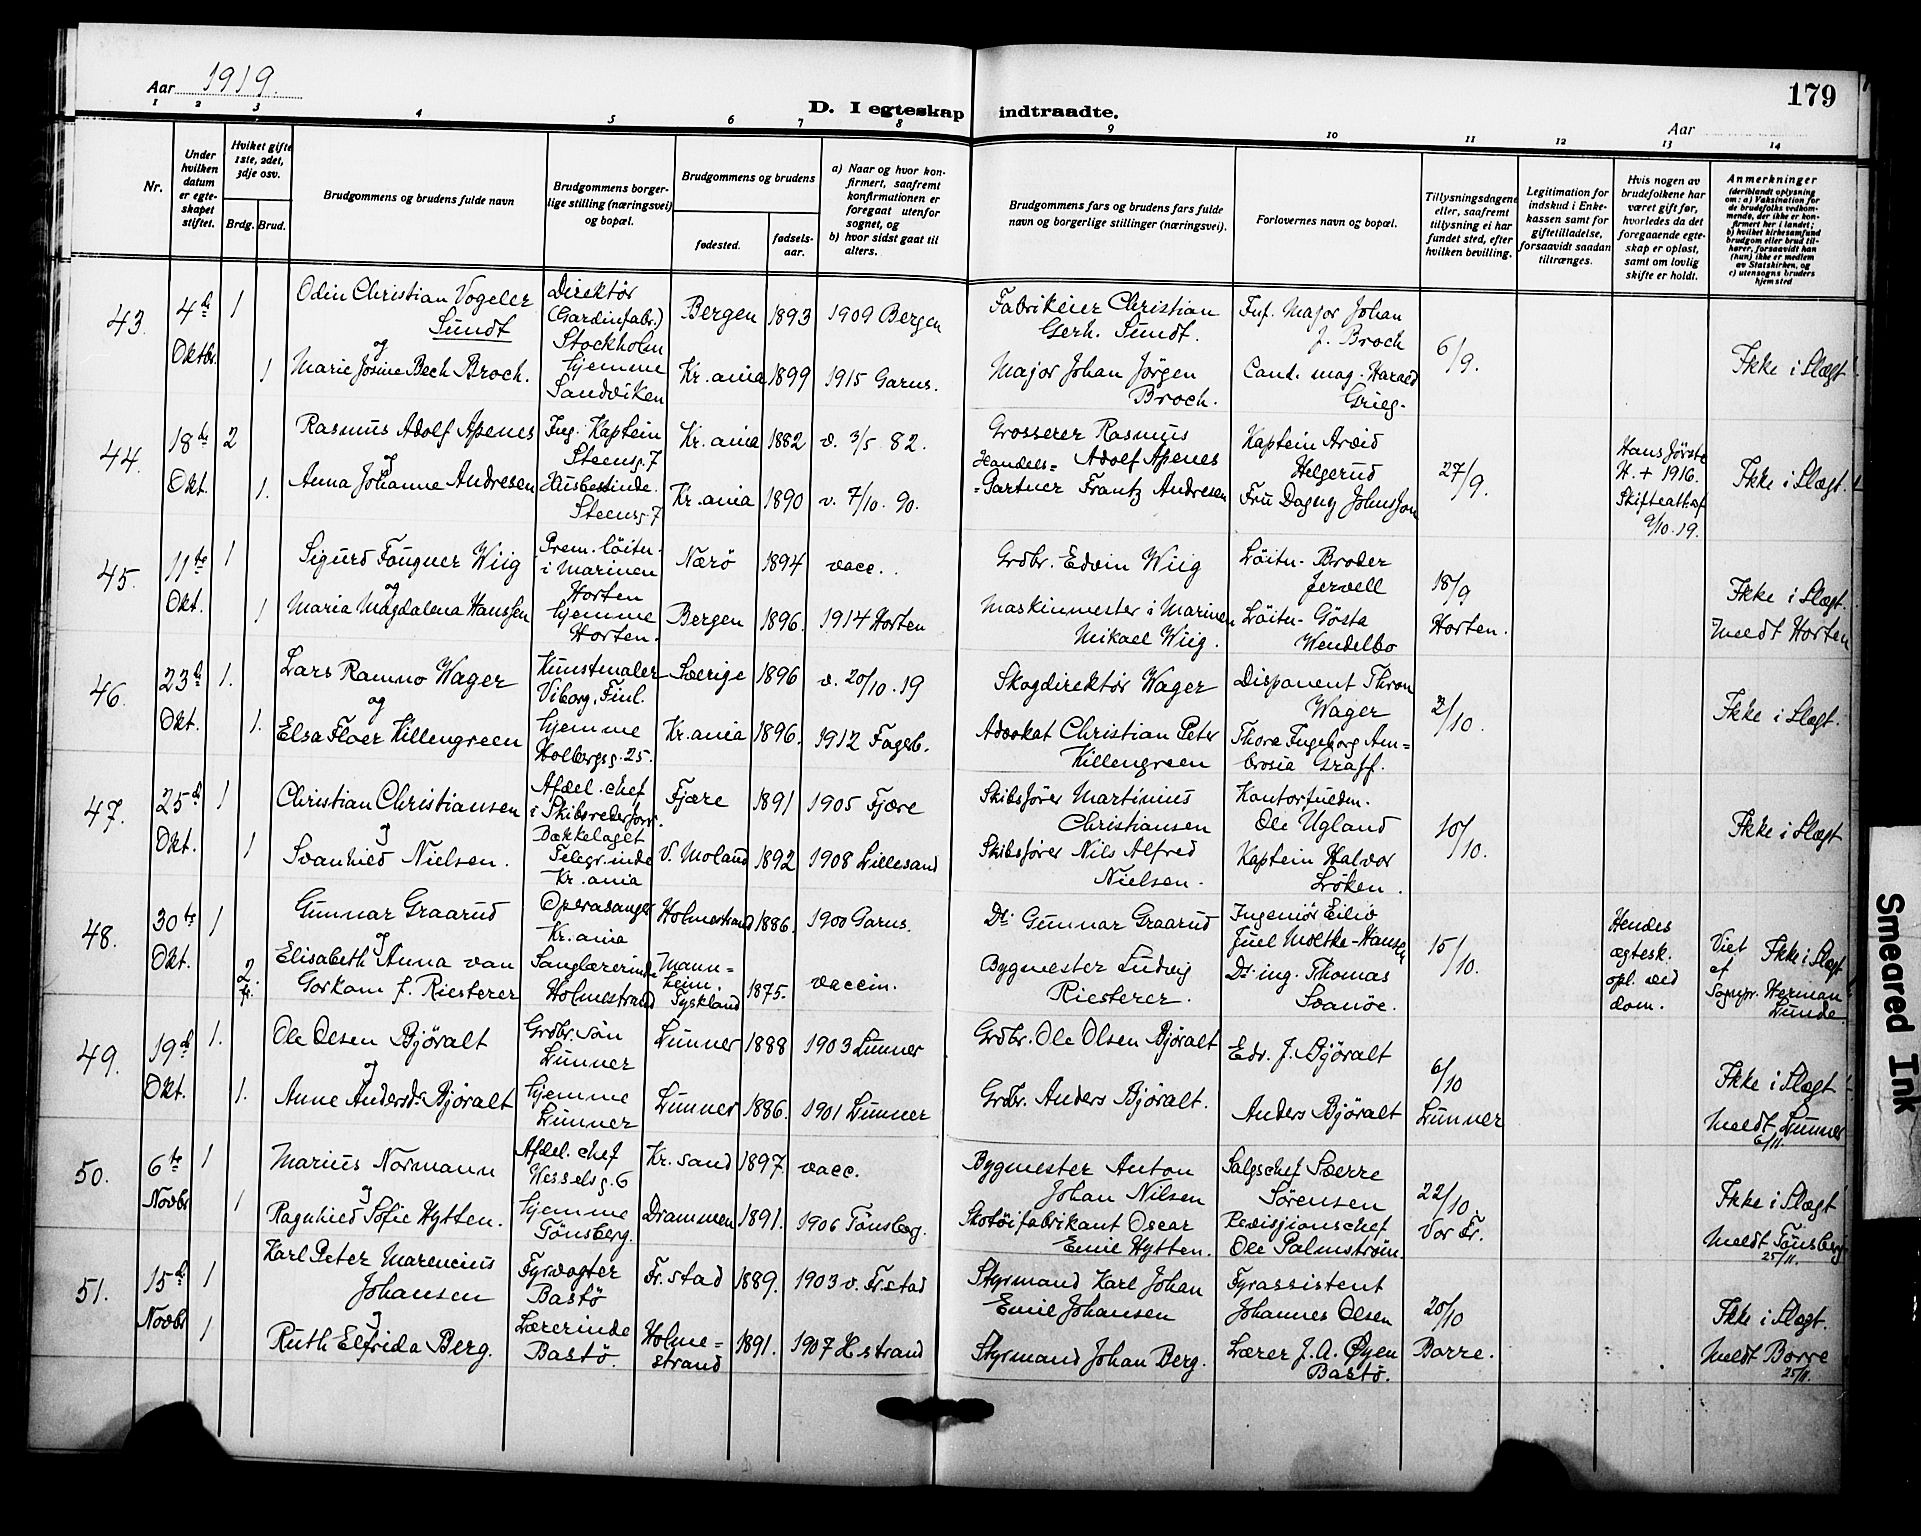 Aar 1919.
179
D. I egteskap indtraadte.
Aar
1 2 3 4 5 6 7 8 9 10 11 12 13 14
Nr.
Under hvilken datum er egteskapet stiftet.
Hvilket gifte 1ste, 2det, 3dje osv.
Brdg. Brud.
Brudgommens og brudens fulde navn
Brudgommens borgerlige stilling (næringsvei) og bopæl.
Brudgommens og brudens
fødested.
fødselsaar.
a) Naar og hvor konfirmert, saafremt konfirmationen er foregaat utenfor sognet, og
b) hvor sidst gaat til alters.
Brudgommens fars og brudens fars fulde navn og borgerlige stillinger (næringsvei).
Forlovernes navn og bopæl.
Tillysningsdagene eller, saafremt tillysning ei har fundet sted, efter hvilken bevilling.
Legitimation for indskud i Enkekassen samt for giftetilladelse, forsaavidt saadan tiltrænges.
Hvis nogen av brudefolkene har været gift før, hvorledes da det foregaaende egteskap er opløst, samt om lovlig skifte er holdt.
Anmerkninger
(deriblandt oplysning om: a) Vaksination for de brudefolks vedkommende, der ikke er konfirmert her i landet; b) hvilket kirkesamfund brudgom eller brud tilhører, forsaavidt han (hun) ikke er medlem av Statskirken, og c) utensogns bruders hjemsted
43. 4de Oktbr. 1
Odin Christian Vogeler Sundt
Direktør (Gardinfabr.) Stockholm
Bergen 1893 1909 Bergen
Fabrikeier Christian Gerh. Sundt.
Inf. Major Johan J. Broch
6/9.
og
1 Marie Josine Bech Broch.
hjemme Sandviken
Kr.ania 1899 1915 Garns.
Major Johan Jørgen Broch.
Cand. mag. Harald Grieg.
Ikke i Slægt.
44. 18de Okt. 2
Rasmus Adolf Apenes
Ing. Kaptein Steensg. 7
Kr.ania 1882 v. 3/5 82.
Grosserer Rasmus Adolf Apenes
Kaptein Arvid Helgerud
27/9.
og
1. Anna Johanne Andresen
Husbestinde. Steensg 7
Kr.ania 1890 v. 7/10. 90.
Handels=Gartner Frantz Andresen
Fru Dagny Johnsson
H. + 1916.
9/10.19.
Ikke i Slægt.
45. 11te Okt. 1
Sigurd Fougner Wiig
Prem. løitn. i Marinen Horten
Nærø 1894 vacc.
Grdbr. Edvin Wiig
Løitn. Broder Jervell
18/9
og
1 Maria Magdalena Hanssen
hjemme Horten.
Bergen 1896. 1914 Horten
Maskinmester i Marinen Mikael Wiig.
Løitn. Gösta Wendelbo
Horten.
Ikke i Slægt.
Meldt Horten
46. 23de Okt. 1.
Lars Ramno Wager
Kunstmaler Viborg, Finl.
Sverige 1896 v. 20/10.19
Skogdirektør Wager
Disponent Thron Wager
2/10.
og
1. Elsa Floer Killengreen
hjemme Holbergsg. 25.
Kr.ania 1896. 1912 Fagerb.
Advokat Christian Peter Killengreen
Thora Ingeborg Ambrosia Graff.
Ikke i Slægt.
47. 25de Okt. 1
Christian Christiansen
Afdel.chef i Skibsrederforr. Bækkelaget
Fjære 1891 1905 Fjære
Skibsfører Martinius Christiansen
Kontorfuldm. Ole Ugland
10/10.
og
1 Svanhild Nielsen.
Telegr.inde Kr.ania
V. Moland 1892 1908 Lillesand
Skibsfører Nils Alfred Nielsen.
Kaptein Halvor Løken.
Ikke i Slægt
48. 30te Okt. 1
Gunnar Graarud
Operasanger Kr.ania
Holmestrand 1886. 1900 Garns.
Dr. Gunnar Graarud
Ingeniør Eiliv Juel Moltke-Hansen
15/10.
og
2. Elisabeth Anna van Gorkom f. Riesterer
Sanglærerinde Holmestrand
Mannheim. Tyskland 1875. vaccin.
Bygmester Ludvig Riesterer.
Dr. ing. Thomas Svanöe.
Hendes ægtesk. opl. ved dom.
Viet af Sognepr. Herman Lunde.
Ikke i Slægt
49. 19de Okt. 1.
Ole Olsen Bjøralt
Grdbr. søn Lunner
Lunner 1888 1903 Lunner
Grdbr. Ole Olsen Bjøralt
Edv. J. Bjøralt
6/10
og
1. Anne Andersdr Bjøralt
hjemme Lunner
Lunner 1886. 1901 Lunner
Grdbr. Anders Bjøralt.
Anders Bjøralt
Lunner
Ikke i Slægt
Meldt Lunner 6/11.
50. 6te Novbr 1
Marius Normann
Afdel.chef Wesselsg. 6
Kr.sand 1897. vacc.
Bygmester Anton Johan Nilsen
Salgschef Sverre Sørensen
22/10.
og
1 Ragnhild Sofie Hytten.
hjemme Tønsberg.
Drammen 1891. 1906 Tønsberg.
Skotøifabrikant Oscar Emil Hytten.
Revisjonschef Ole Palmstrøm.
Vor Fr.
Ikke i Slægt
Meldt Tønsberg 25/11.
51. 15de Novbr 1
Karl Peter Marencius Johansen
Fyrvogter Bastø
Fr.stad 1889. 1903 v. Fr.stad
Styrmand Karl Johan Emil Johansen
Fyrassistent Johannes Olsen
20/10
og
1 Ruth Elfrida Berg.
Lærerinde Bastø.
Holmestrand 1891. 1907 H.strand
Styrmand Johan Berg.
Lærer J. A. Øyen Bastø.
Borre.
Ikke i Slægt.
Meldt Borre 25/11.
Smeared Ink